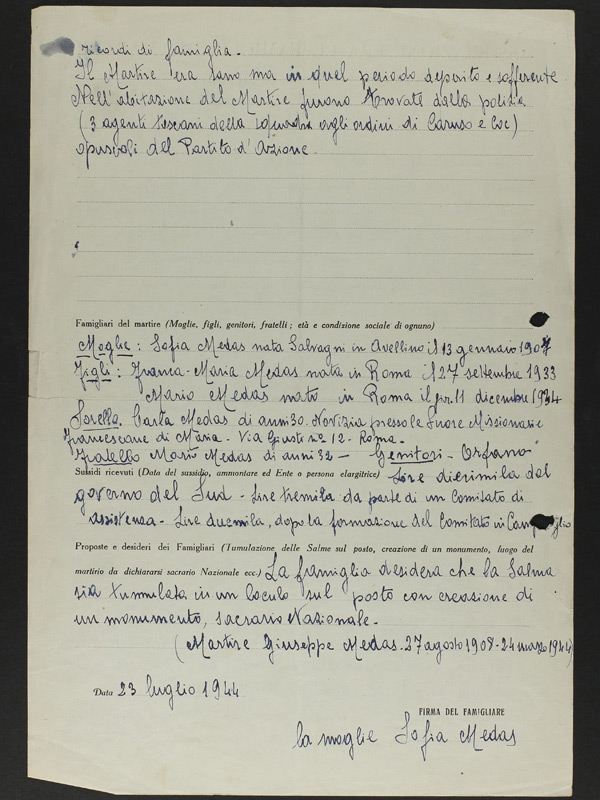 ricordi di famiglia.
Il Martire era sano ma in quel periodo deperito e sofferente
Nell'abitazione del Martire furono trovati dalla polizia
(3 agenti toscani della squadra agli ordini di Caruso e Coc)
opuscoli del Partito d'Azione.
Famigliari del martire (Moglie, figli, genitori, fratelli; età e condizione sociale di ognuno)
Moglie: Sofia Medas nata Salvagni in Avellino il 13 gennaio 1907
Figli: Franca-Maria Medas nata in Roma il 27 settembre 1933
Mario Medas nato in Roma il 11 dicembre 1934
Sorella. Carla Medas di anni 30. Novizia presso le Suore Missionarie
Francescane di Maria - Via Giusti nº 12 - Roma.
Fratello Mario Medas di anni 32 - Genitori - Orfano
Sussidi ricevuti (Data del sussidio, ammontare ed Ente o persona elargitrice) Lire diecimila dal
governo del Sud - Lire tremila da parte di un Comitato di
assistenza - Lire duemila, dopo la formazione del Comitato in Campidoglio
Proposte e desideri dei Famigliari (Tumulazione delle Salme sul posto, creazione di un monumento, luogo del
martirio da dichiararsi sacrario Nazionale ecc.) La famiglia desidera che la Salma
sia tumulata in un loculo sul posto con creazione di
un monumento, sacrario Nazionale.
(Martire Giuseppe Medas. 27 agosto 1908 - 24 marzo 1944)
Data 23 luglio 1944
FIRMA DEL FAMIGLIARE
la moglie Sofia Medas